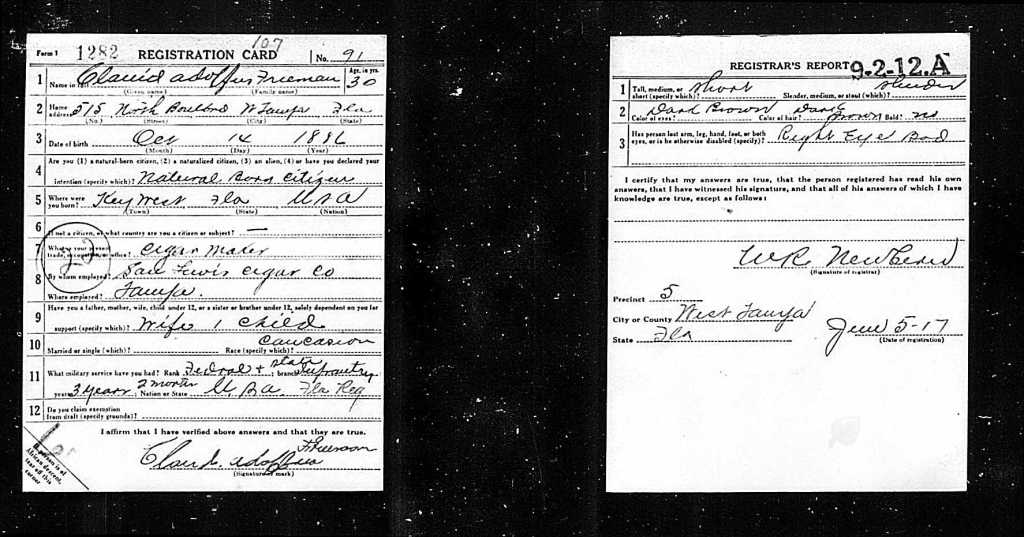 107
Form 1 1282 REGISTRATION CARD No. 91
1 Name in full Claud Adolfus Freeman Age, in yrs. 30
(Given name) (Family name)
2 Home address 515 North W Tampa Fla
(No.) (Street) (City) (State)
3 Date of birth Oct 14 1886
(Month) (Day) (Year)
4 Are you (1) a natural-born citizen, (2) a naturalized citizen, (3) an alien, (4) or have you declared your
intention (specify which)? Natural Born Citizen
5 Where were you born? Key West Fla USA
(Town) (State) (Nation)
6 If not a citizen, of what country are you a citizen or subject? —
7 What is your present trade, occupation, or office? Cigar Maker
8 By whom employed? San Cigar Co
Where employed? Tampa.
9 Have you a father, mother, wife, child under 12, or a sister or brother under 12, solely dependent on you for
support (specify which)? Wife 1 Child
10 Married or single (which)? Race (specify which)? Caucasion
11 What military service have you had? Rank Federal + State; branch Infrantry
years 3 years 2 months; Nation or State U S A. Fla Reg
12 Do you claim exemption
from draft (specify grounds)?
I affirm that I have verified above answers and that they are true.
Claud. Adolfus Freeman
(Signature or mark)
If person is of
African descent,
tear off this
corner
REGISTRAR'S REPORT 9-2-12.A
1 Tall, medium, or short (specify which)? Short Slender, medium, or stout (which)? Slender
2 Color of eyes? Dark Brown Color of hair? Dark Brown Bald? no
3 Has person lost arm, leg, hand, foot, or both
eyes, or is he otherwise disabled (specify)? Right Eye Bad
I certify that my answers are true, that the person registered has read his own
answers, that I have witnessed his signature, and that all of his answers of which I have
knowledge are true, except as follows:
W.R. Newbern
(Signature of registrar)
Precinct 5
City or County West Tampa
State Fla
June 5-17
(Date of registration)